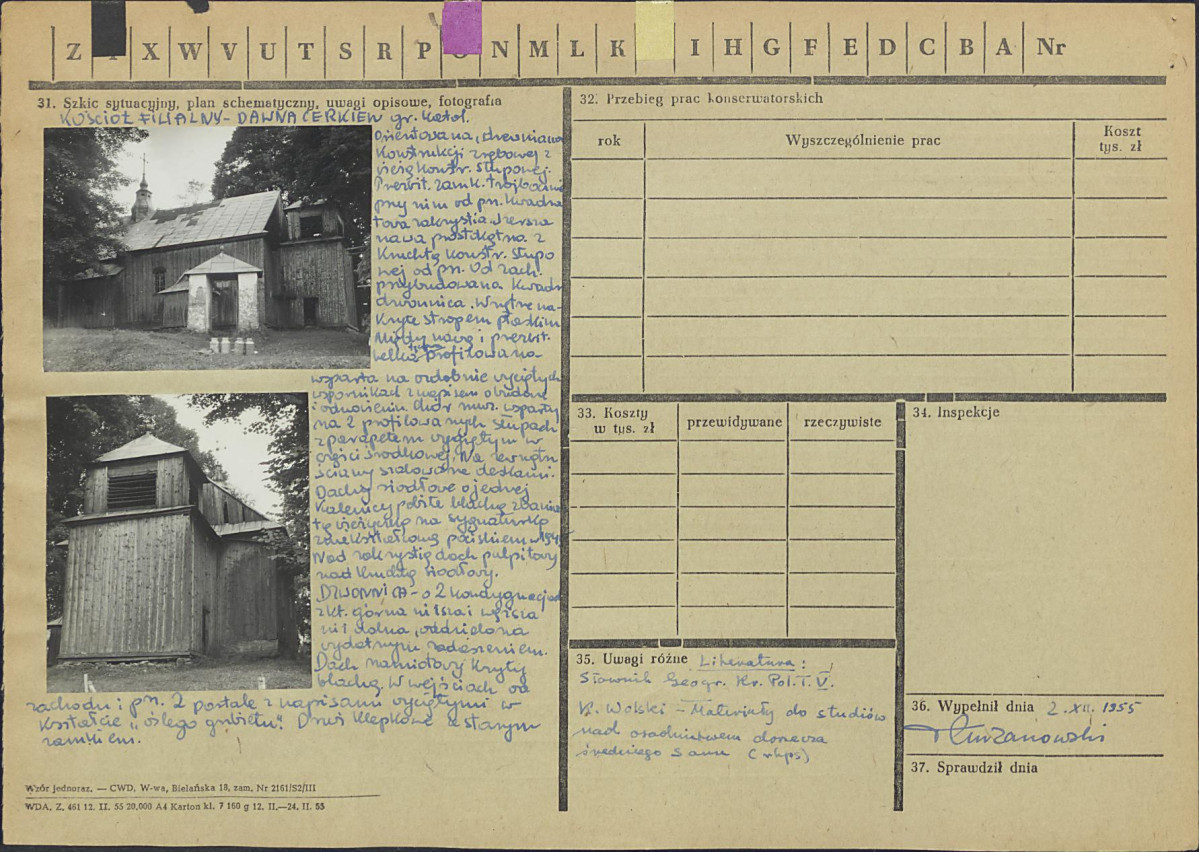 Z X W V U T S R P O N M L K I H G F E D C B A Nr
31. Szkic sytuacyjny, plan schematyczny, uwagi opisowe, fotografia
KOŚCIÓŁ FILIALNY - DAWNA CERKIEW gr. katol.
Orientowana, drewniana
Konstrukcji zrębowej z
wieżą konstr. słupowej.
Prezbit. zamk. trójbocznie
przy nim od pn. kwadra
towa zakrystia, szersza
nawa prostokątna z
kruchtą konstr. słupo
wej od pn. Od zach.
przybudowana kwadr.
dzwonnica. Wnętrze na-
kryte stropem płaskim
Między nawą i prezbit.
belka profilowana
wsparta na ozdobnie wyciętych
wspornikach z napisem o budowie
i odnowieniu. Chór muz. wsparty
na 2 profilowanych słupach
z parapetem wygiętym w
części środkowej. Na zewnątrz
ściany szalowane deskami.
Dachy siodłowe o jednej
kalenicy pobite blachą z banias
tą wieżyczką na sygnaturkę
pociskiem w
Nad zakrystią dach pulpitowy
nad kruchtą siodłowy.
DZWONNICA - o 2 kondygnacjach
z kt. górna niższa i węższa
niż dolna, oddzielona
wydatnym zadaszeniem.
Dach namiotowy kryty
blachą. W wejściach od
zachodu i pn. 2 portale z napisami wyciętymi w
kształcie „oślego grzbietu". Drzwi klepkowe z starym
zamkiem.
Wzór jednoraz. — CWD, W-wa, Bielańska 18, zam. Nr 2161/S2/III
WDA. Z. 461 12. II. 55 20,000 A4 Karton kl. 7 160 g 12. II.—24. II. 55
32. Przebieg prac konserwatorskich
rok
Wyszczególnienie prac
Koszt
tys. zł
33. Koszty
w tys. zł
przewidywane
rzeczywiste
34. Inspekcje
35. Uwagi różne Literatura:
Słownik Geogr. Kr. Pol. T. V.
K. Wolski - Materiały do studiów
nad osadnictwem dorzecza
średniego Sanu (rkps)
36. Wypełnił dnia 2. XII. 1955
37. Sprawdził dnia